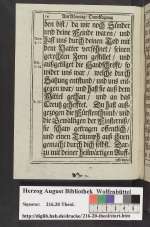 den bist / da wir noch Sünder
und deine Feinde waren / und
hast uns durch deinen Tod mit
dem Vatter versöhnet / seinen
gerechten Zorn gestillet / und
außgetilget die Handschrifft / so
wider uns war / welche durch
Satzung entstund / und uns ent-
gegen war / und hast sie auß dem
Mittel gethan / und an das
Creutz gehefftet. Du hast auß-
gezogen die Fürstenthumb / und
die Gewaltigen der Finsternuß /
sie schau getragen öffentlich /
und einen Triumph auß ihnen
gemacht durch dich selbst.
zu mit deiner
Herzog August Bibliothek Wolfenbüttel
Signatur: 216.20 Theol.
http://diglib.hab.de/drucke/216-20-theol/start.htm